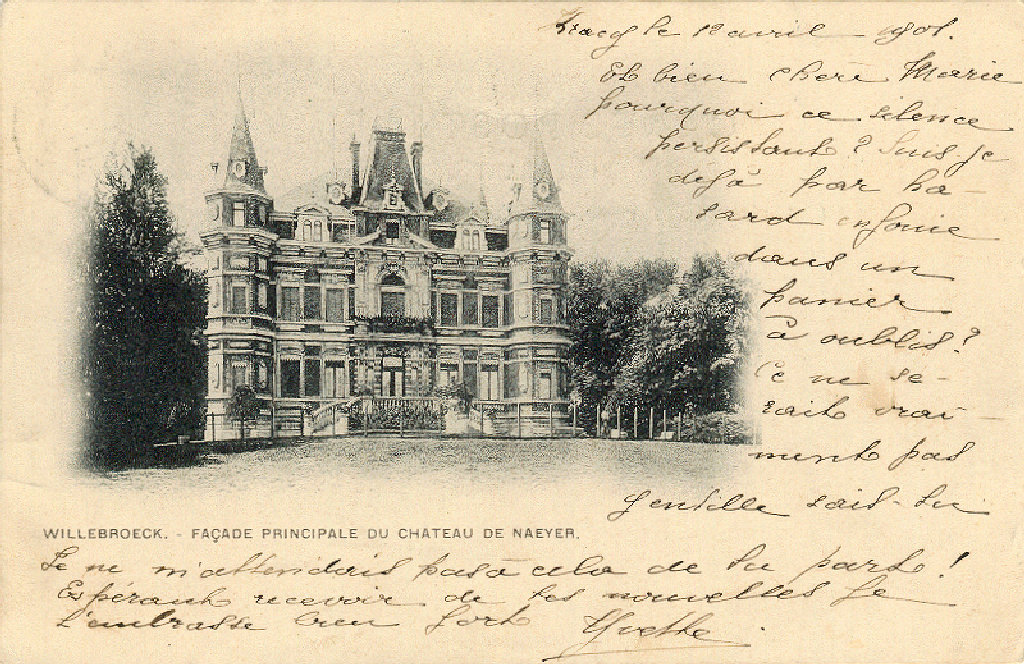 le 12 avril 1901.
Et bien chère Marie
pourquoi ce silence
persistant? Suis-je
dejà par ha-
sard enfouie
dans un
panier
à oublis?
Ce ne se-
rait vrai-
ment pas
gentille sait-tu
WILLEBROECK. - FAÇADE PRINCIPALE DU CHÂTEAU DE NAEYER.
Je ne m'attendais pas à cela de tu part!
Espérant recevoir de tes nouvelles Je
t'embrasse bien fort Yvette.